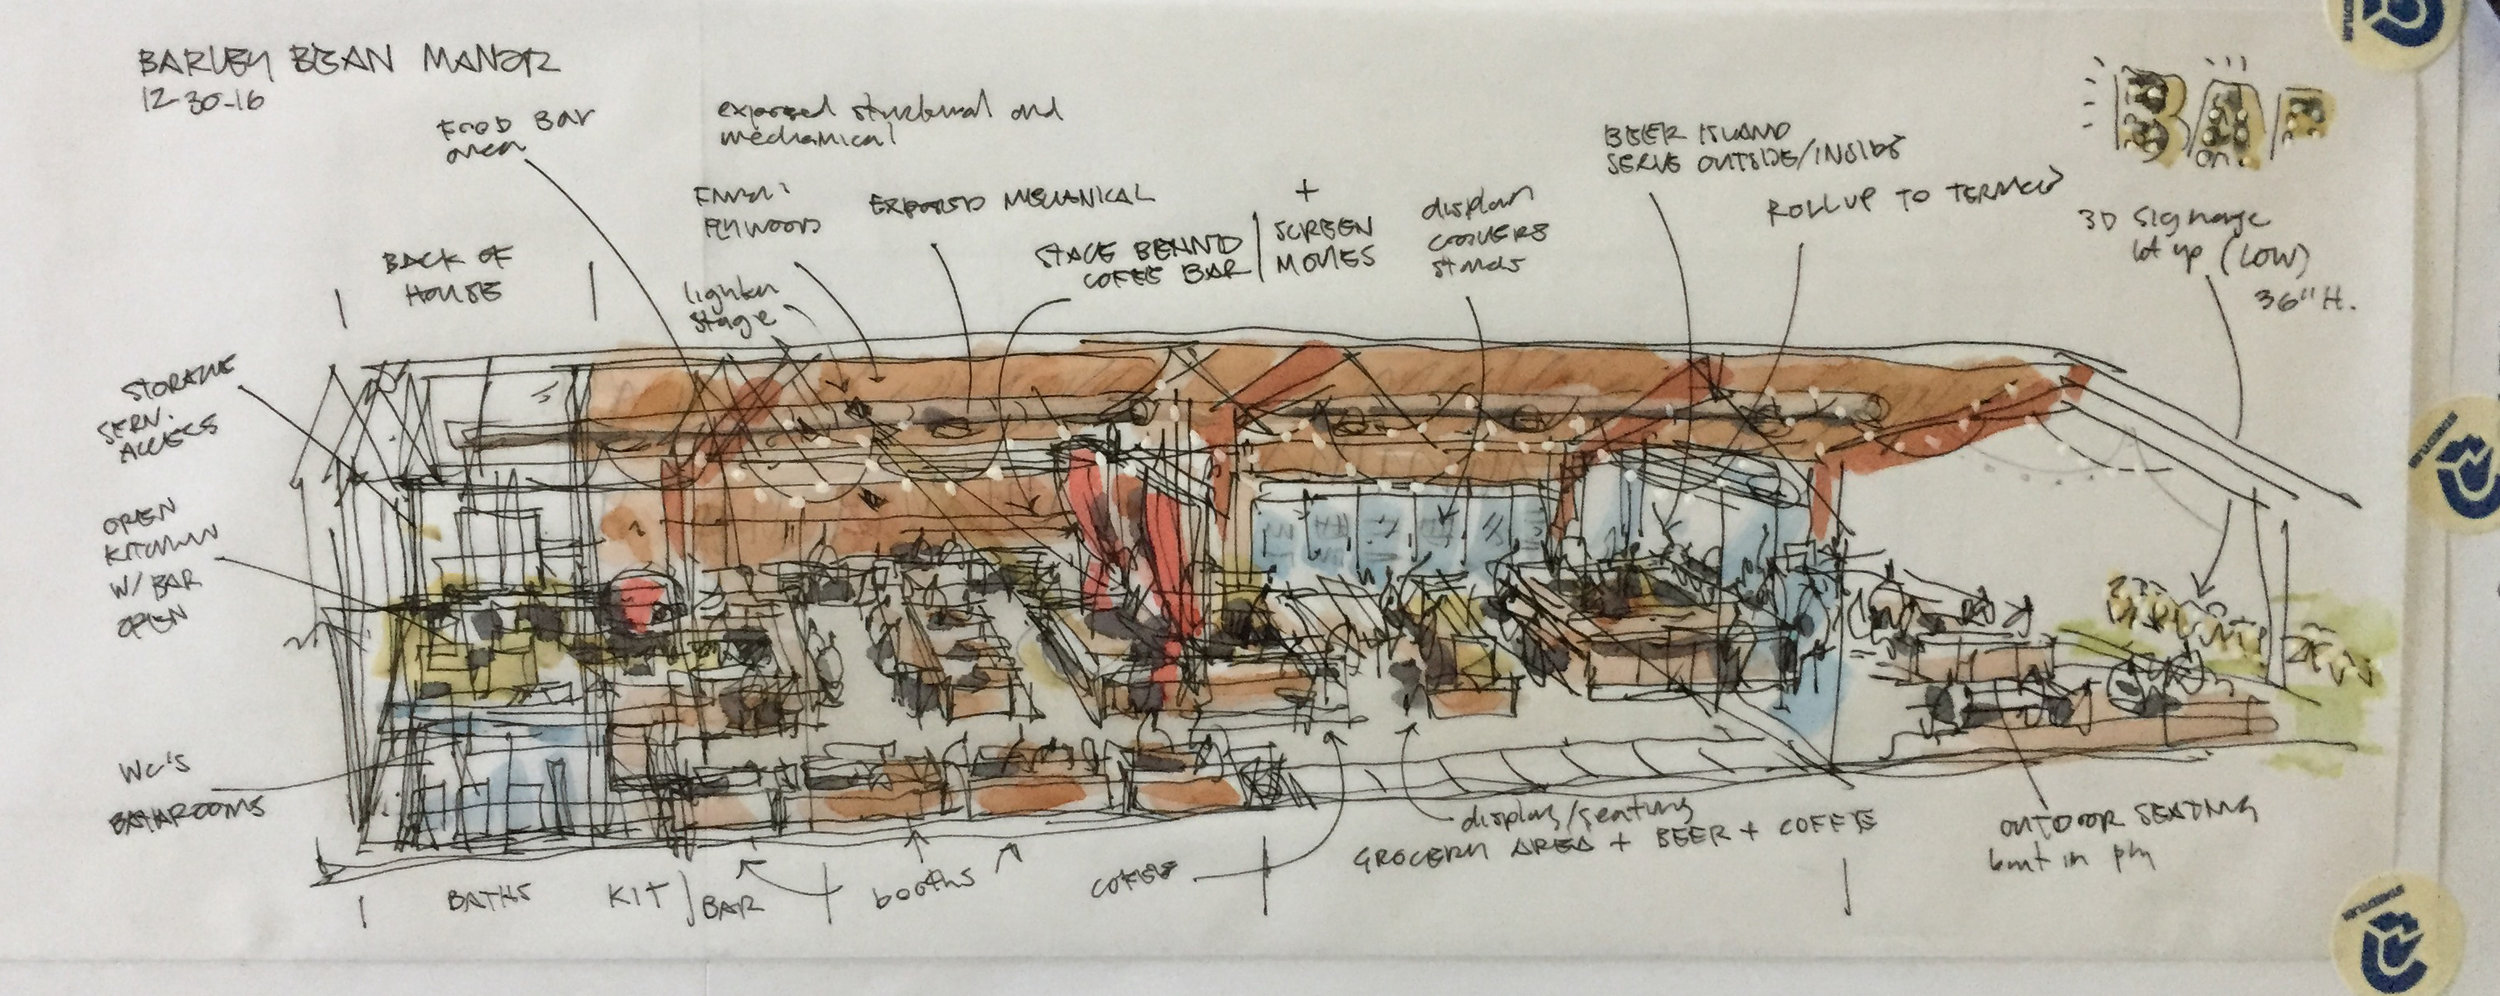 BARLEY BEAN MANOR
12-30-16
FOOD BAR
area
exposed structural and
mechanical
PLYWOOD
EXPOSED MECHANICAL
STAGE BEHIND
COFFEE BAR
+
SCREEN
MOVIES
display
COOLERS
BEER ISLAND
SERVE OUTSIDE/INSIDE
ROLL UP TO TERRACE
BAR
3D signage
lit up (LOW)
36" H.
BACK OF
HOUSE
lighter
stage
STORAGE
SERV.
ACCESS
OPEN
KITCHEN
W/ BAR
OPEN
WC'S
BATHROOMS
BATHS
KIT
BAR
booths
COFFEE
display/seating
GROCERY AREA + BEER + COFFEE
OUTDOOR SEATING
built in ply